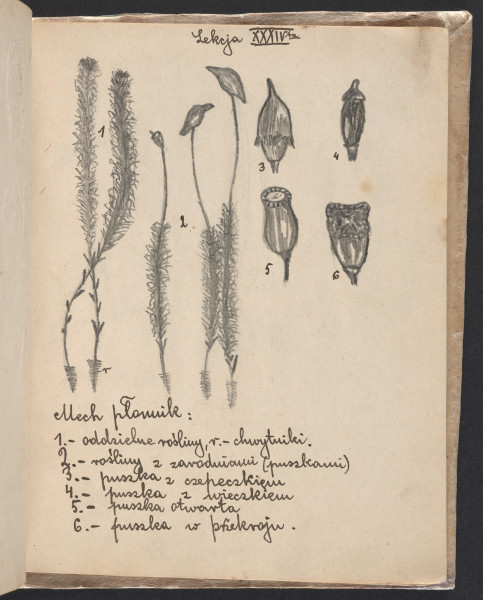 Lekcja XXXIV-ta
1
2
3
4
5
6
r
Mech płonnik:
1.- oddzielne rośliny, r.- chwytniki.
2.- rośliny z zarodniami (puszkami)
3.- puszka z czepeczkiem
4.- puszka z wieczkiem
5.- puszka otwarta
6.- puszka w przekroju.